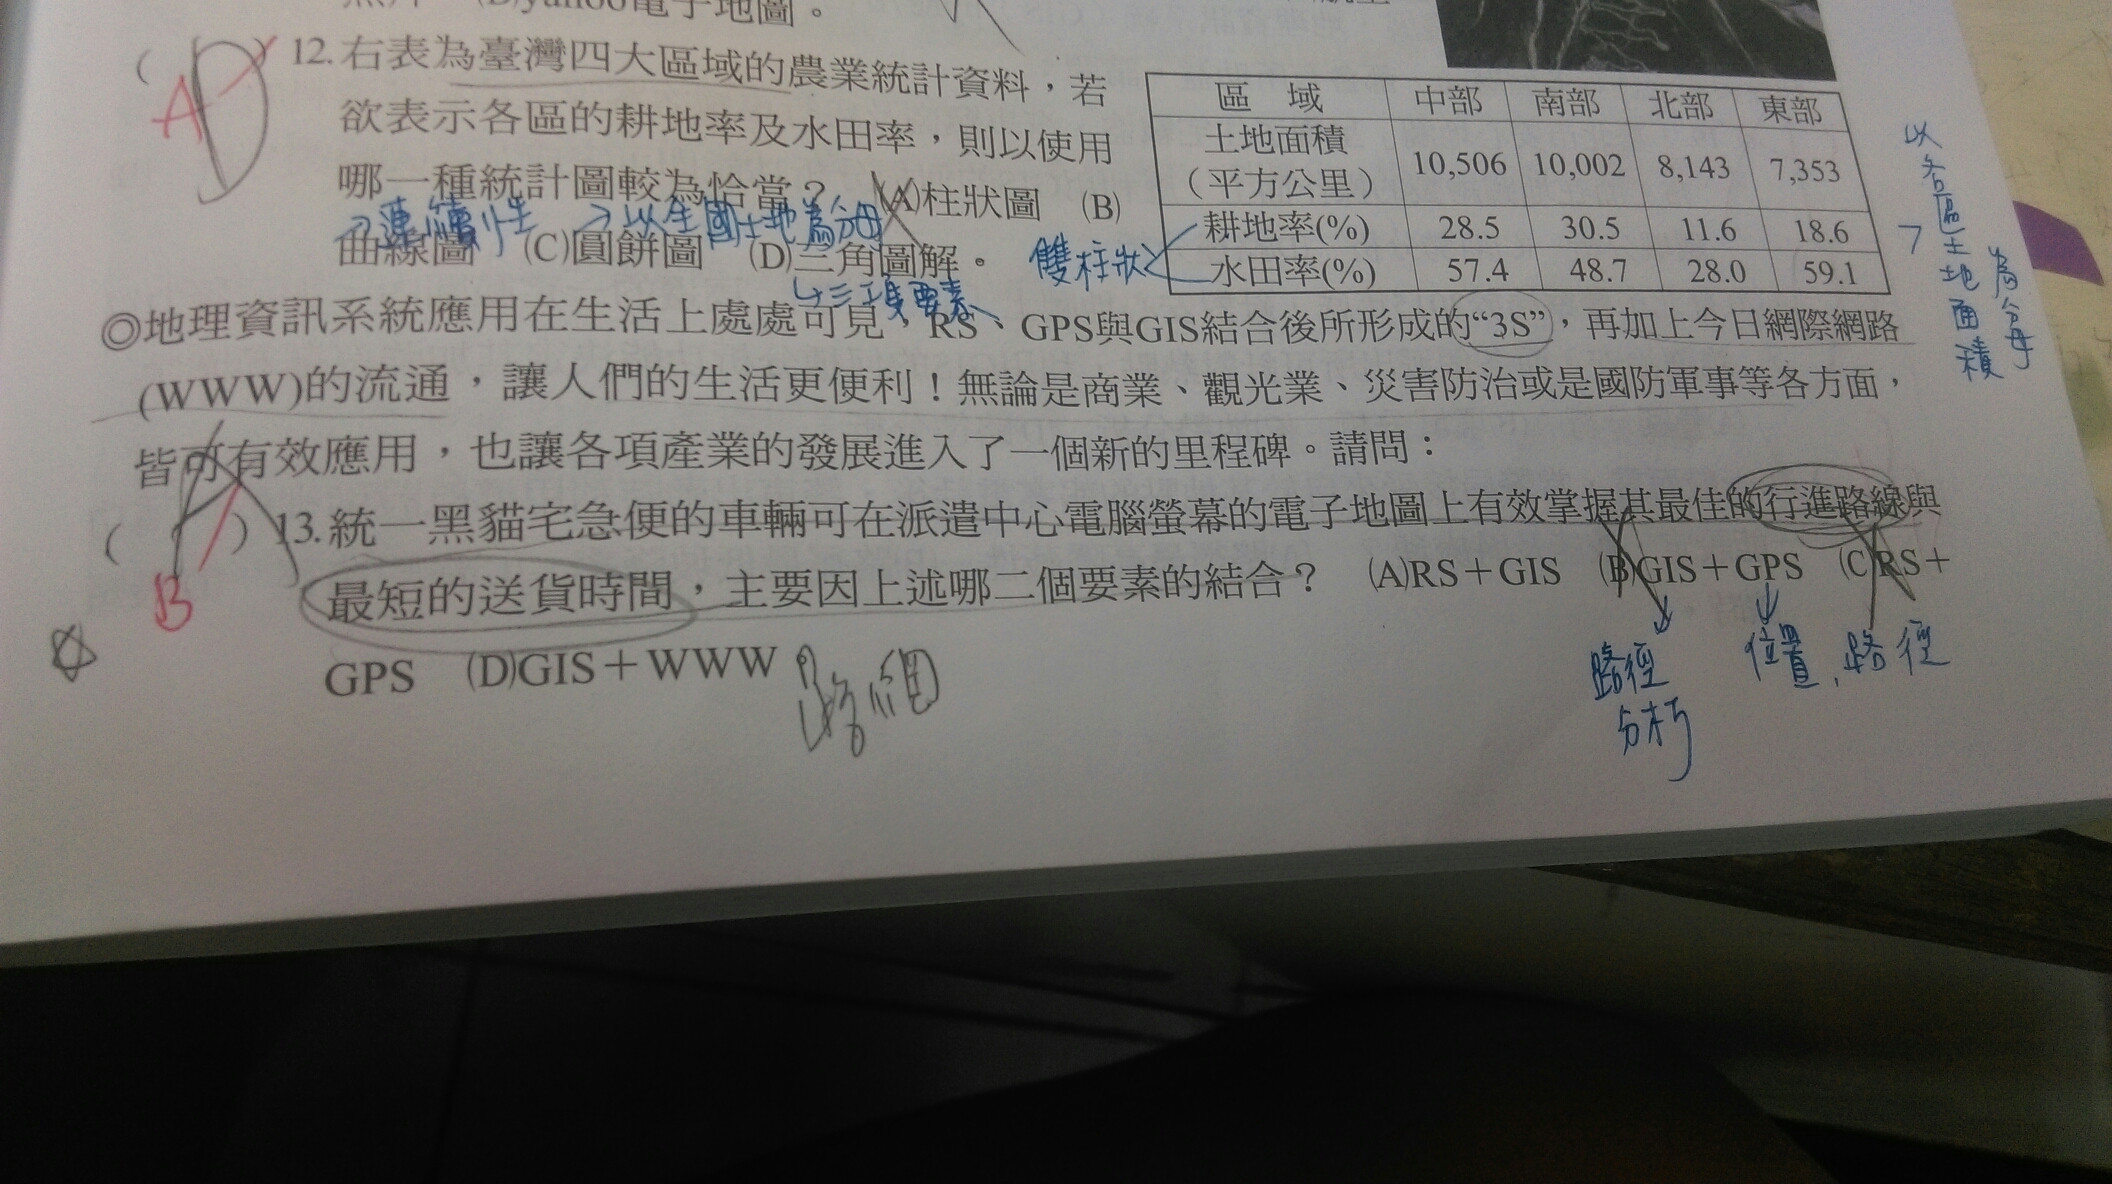 (D)yahoo電子地圖。
( ) 12.右表為臺灣四大區域的農業統計資料，若
A D
欲表示各區的耕地率及水田率，則以使用
哪一種統計圖較為恰當？ (A)柱狀圖 (B)
→連續性 →以全國土地為分母
曲線圖 (C)圓餅圖 (D)三角圖解。
↳三項要素
區 域 中部 南部 北部 東部
土地面積
（平方公里） 10,506 10,002 8,143 7,353
耕地率(%) 28.5 30.5 11.6 18.6
水田率(%) 57.4 48.7 28.0 59.1
雙柱狀
以各區土地面積
為分母
◎地理資訊系統應用在生活上處處可見，RS、GPS與GIS結合後所形成的“3S”，再加上今日網際網路
(WWW)的流通，讓人們的生活更便利！無論是商業、觀光業、災害防治或是國防軍事等各方面，
皆可有效應用，也讓各項產業的發展進入了一個新的里程碑。請問：
( ) 13.統一黑貓宅急便的車輛可在派遣中心電腦螢幕的電子地圖上有效掌握其最佳的行進路線與
B
最短的送貨時間，主要因上述哪二個要素的結合？ (A)RS＋GIS (B)GIS＋GPS (C)RS＋
GPS (D)GIS＋WWW
路網
路徑
分析
位置,路徑